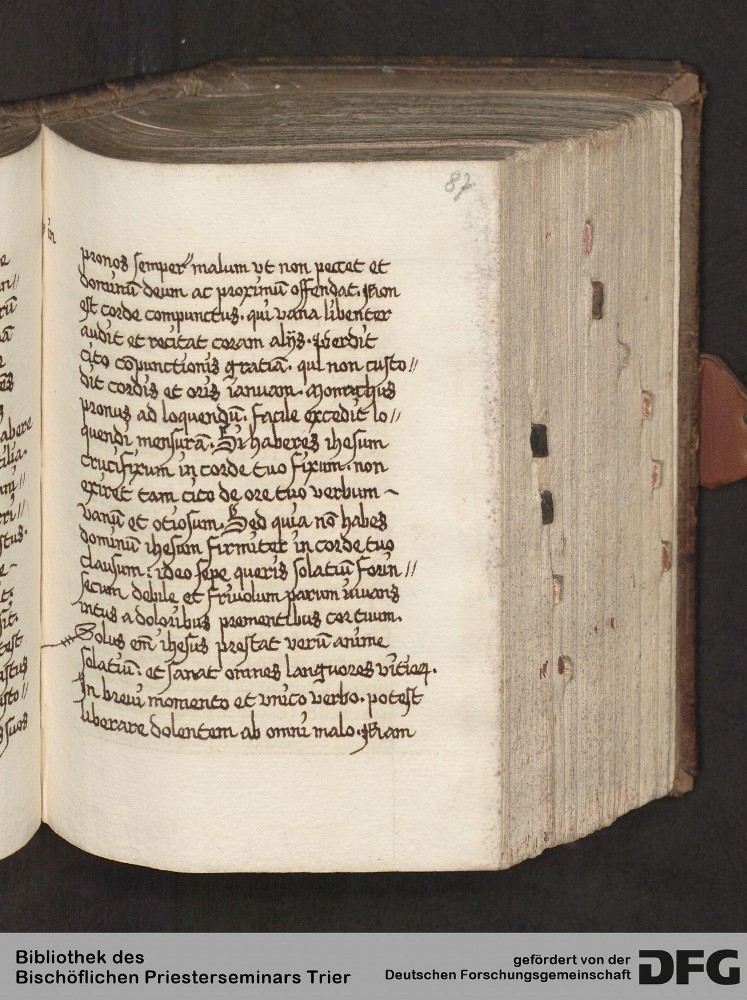 87
in
pronos semper malum vt non peccet et
dominū deum ac proximū offendat. Non
est corde compunctus. qui vana libenter
audit et recitat coram alijs. Perdit
cito cōpunctionis gratiā. qui non custo//
dit cordis et oris ianuam.
pronus ad loquendū. facile excedit lo//
quendi mensurā. Si haberes ihesum
crucifixum in corde tuo fixum. non
exiret tam cito de ore tuo verbum ~
vanū et otiosum. Sed quia nō habes
dominū ihesum firmiter in corde tuo
clausum: ideo sepe queris solatiū forin//
secum debile et friuolum parum iuuans
intus a doloribus prementibus cor tuum.
Solus em̄ ihesus prestat verū anime
solatiū: et sanat omnes languores vitioꝝ.
In breui momento et vnico verbo. potest
liberare dolentem ab omni malo. Nam
Bibliothek des
Bischöflichen Priesterseminars Trier
gefördert von der
Deutschen Forschungsgemeinschaft
DFG